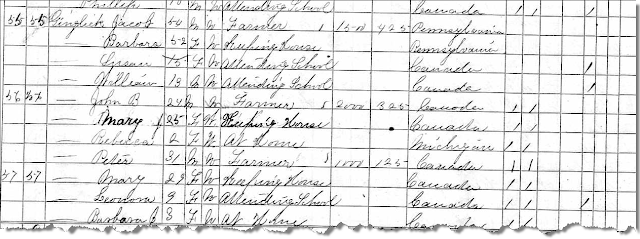 Phillip 10 M W Attending School Canada
55 55 Gingrich Jacob 54 M W Farmer 1500 425 Pennsylvania
— Barbara 52 F W Keeping House Pennsylvania
— Susan 15 F W Attending School Canada
— William 13 M W Attending School Canada
56 56 — John B 24 M W Farmer 2000 325 Canada
— Mary 25 F W Keeping House Canada
— Rebecca 2 F W At Home Michigan
— Peter 31 M W Farmer 1000 125 Canada
57 57 — Mary 29 F W Keeping House Canada
— Leonora 9 F W Attending School Canada
— Barbara 8 F W At Home Canada